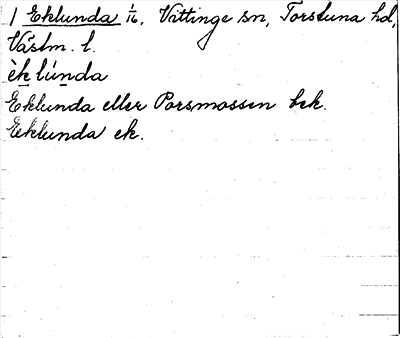 1 Eklunda 1/16, Vittinge sn, Torstuna hd,
Västm. l.
èk lúnda
Eklunda eller Porsmossen bek.
Eklunda ek.